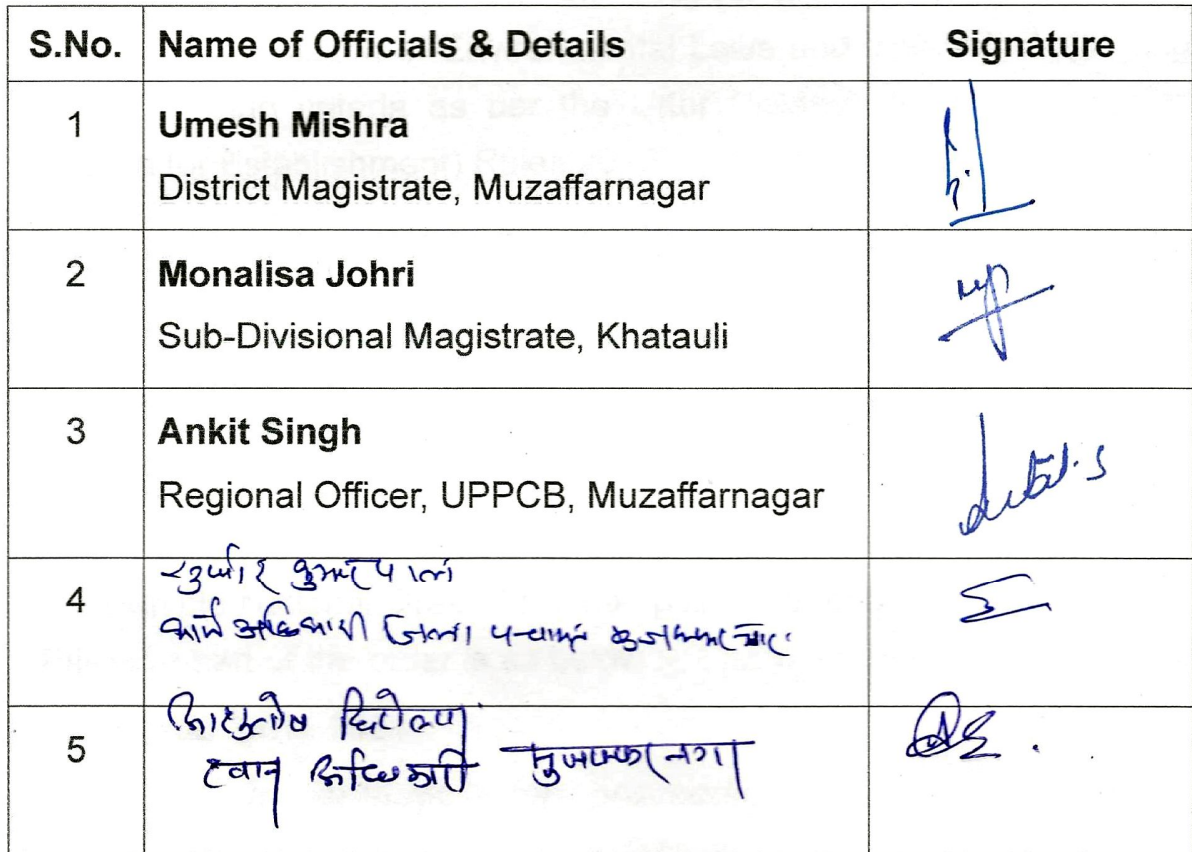 S.No. Name of Officials & Details Signature
1 Umesh Mishra
District Magistrate, Muzaffarnagar
2 Monalisa Johri
Sub-Divisional Magistrate, Khatauli
3 Ankit Singh
Regional Officer, UPPCB, Muzaffarnagar
4
कार्य अधिकारी जिला पंचायत मुजफ्फरनगर
5
अधिकारी मुजफ्फरनगर